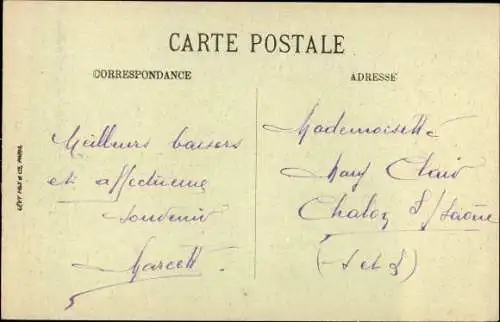 CARTE POSTALE
CORRESPONDANCE
ADRESSE
Meilleurs baisers
et affectueux
souvenir
Marcell
Mademoiselle
Clair
Chalon S/Saône
(S et L)
LÉVY FILS & CIE, PARIS